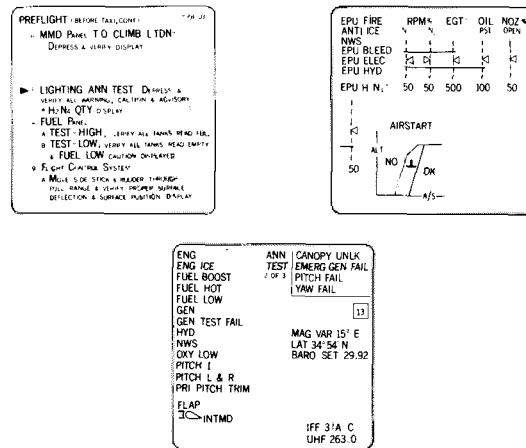 PREFLIGHT (BEFORE TAXI, CONT)
MMD PANEL TO CLIMB LTDN
DEPRESS & VERIFY DISPLAY
LIGHTING ANN TEST DEPRESS &
VERIFY ALL WARNING, CAUTION & ADVISORY
* H2N4 QTY DISPLAY
FUEL PANEL
A TEST-HIGH, VERIFY ALL TANKS READ FULL
B TEST-LOW, VERIFY ALL TANKS READ EMPTY
& FUEL LOW CAUTION DISPLAYED
9 FLIGHT CONTROL SYSTEM
A MOVE SIDE STICK & RUDDER THROUGH
FULL RANGE & VERIFY PROPER SURFACE
DEFLECTION & SURFACE POSITION DISPLAY
EPU FIRE RPM% EGT° OIL NOZ%
ANTI ICE PSI OPEN
NWS
EPU BLEED
EPU ELEC
EPU HYD
EPU H N 50 50 500 100 50
50
AIRSTART
ALT
NO
OK
A/S
ENG
ENG ICE
FUEL BOOST
FUEL HOT
FUEL LOW
GEN
GEN TEST FAIL
HYD
NWS
OXY LOW
PITCH I
PITCH L & R
PRI PITCH TRIM
FLAP
INTMD
ANN
TEST
2 OF 3
CANOPY UNLK
EMERG GEN FAIL
PITCH FAIL
YAW FAIL
13
MAG VAR 15° E
LAT 34°54' N
BARO SET 29.92
IFF 3/A C
UHF 263.0